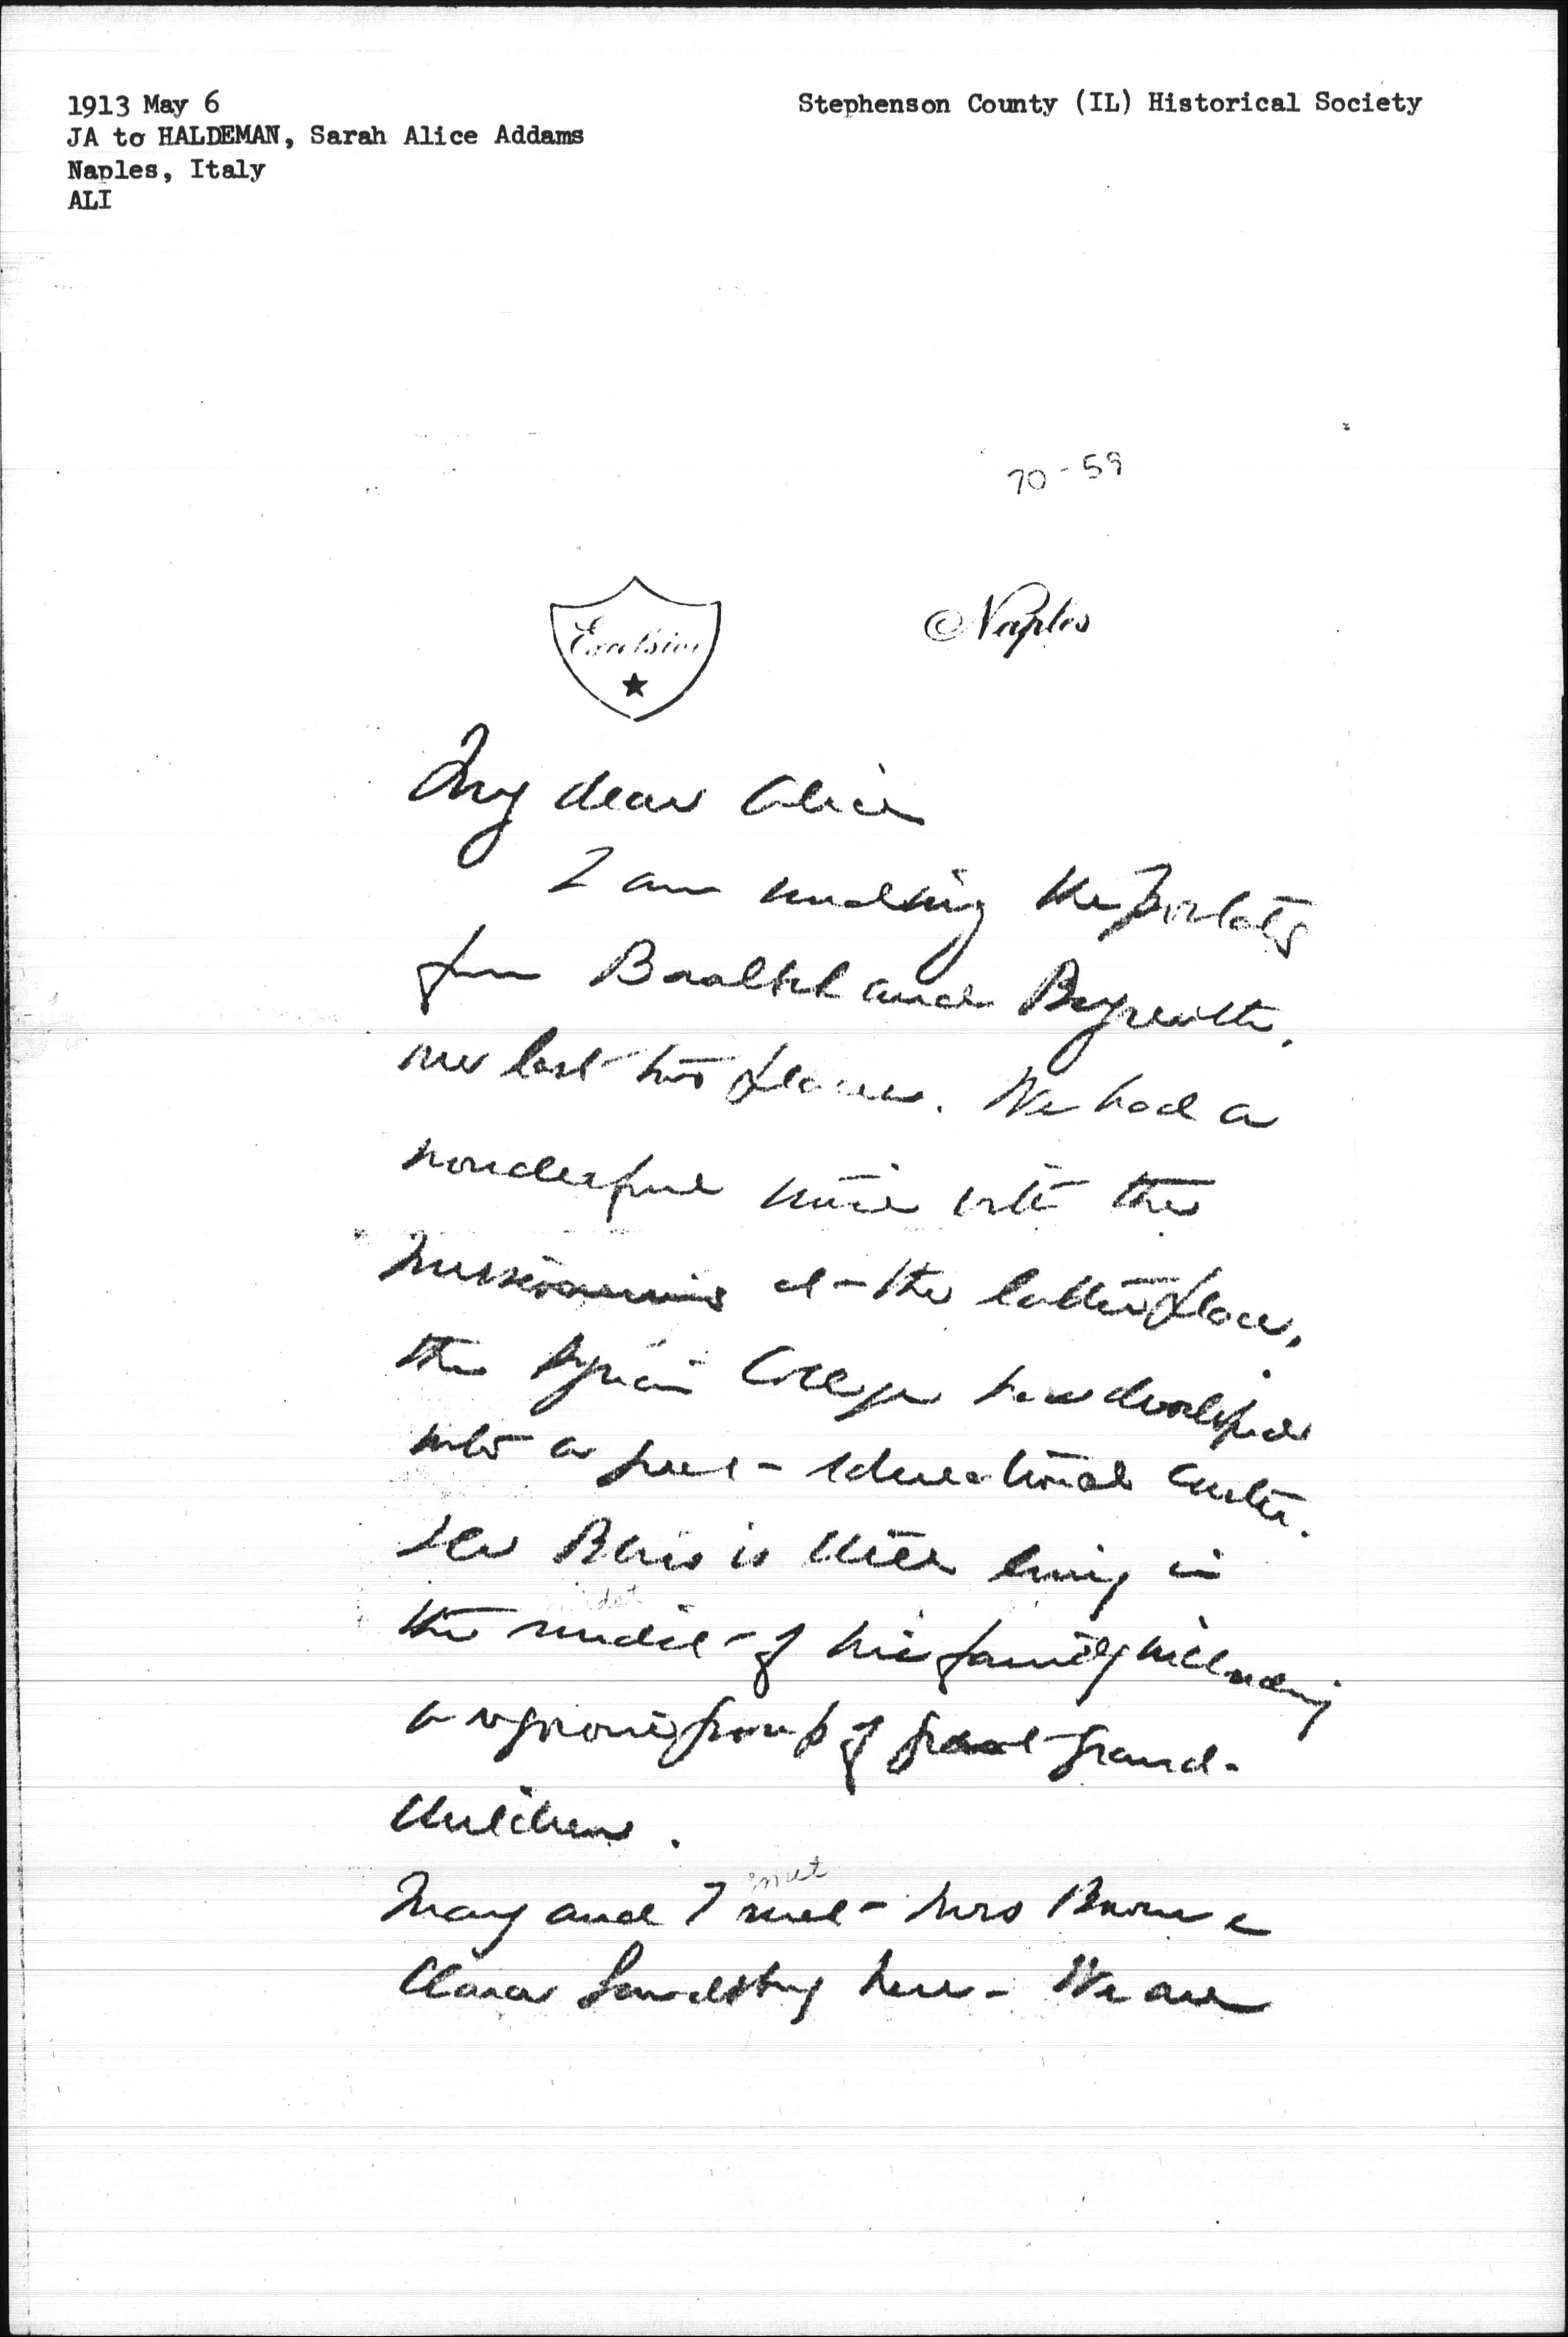 1913 May 6
JA to HALDEMAN, Sarah Alice Addams
Naples, Italy
ALI
Stephenson County (IL) Historical Society
70-59
Excelsior
Naples
My dear Alice
I am sending the postals
from Baalbek and Beyreuth,
our last two places. We had a
wonderful time with the
missionaries at the latter place,
the Syrian College has developed
into a great educational center.
Bliss is still living in
midst
the midst of his family including
a vigorous group of great grand-
children.
met
Mary and I met Mrs Bowen &
Clara Landsberg here - We are